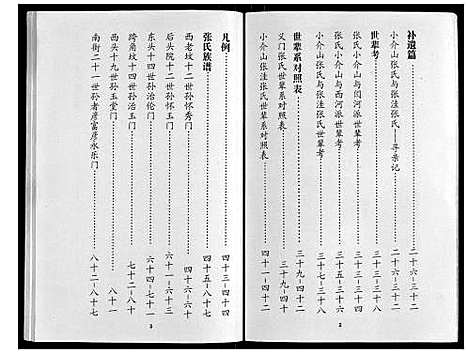 补遗篇……二十六-三十二
小介山张氏与张洼张氏——寻亲记……二十六-三十二
世辈考……三十三-三十六
小介山张氏与闫河派世辈考……三十三-三十四
张氏小介山与西河派世辈考……三十五-三十六
小介山张氏与张洼张氏世辈考
世辈系对照表……三十九-四十二
义门张氏世辈系对照表……三十九-四十
小介山张洼张氏世辈系对照表……四十一-四十二
2
凡例……四十三-四十四
张氏族谱……四十五-八十七
西老坟十二世孙怀秀门……四十六-六十
后头院十二世孙怀玉门……六十一-六十三
东头十四世孙治伦门……六十四-七十一
跨角坟十四世孙治玉门
西头十九世孙玉堂门
南街二十一世孙者彦富彦永乐门……八十二-八十七
3